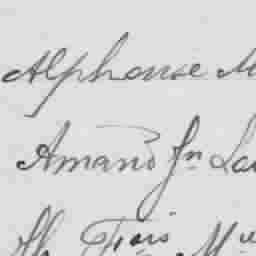 Alphonse M
Amand Jn La
Trois M